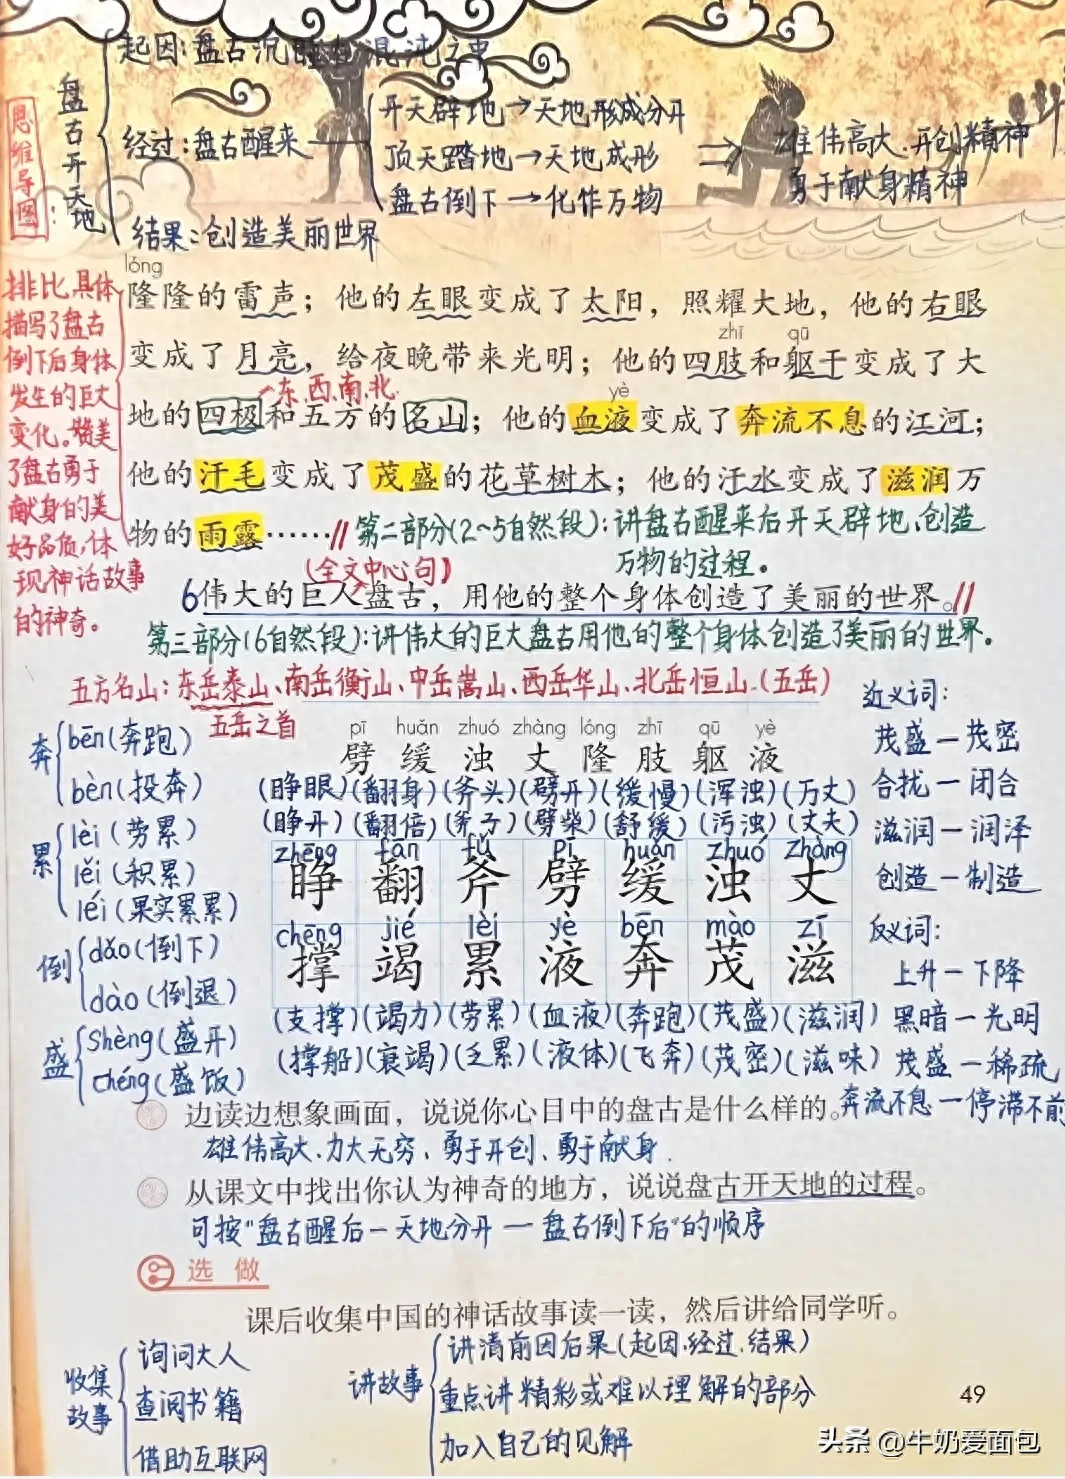 思维导图:
盘古开天地
起因:盘古沉睡在混沌之中
经过:盘古醒来
开天辟地→天地形成分开
顶天踏地→天地成形
盘古倒下→化作万物
雄伟高大、开创精神
勇于献身精神
结果:创造美丽世界
排比,具体
描写了盘古
倒下后身体
发生的巨大
变化。赞美
了盘古勇于
献身的美
好品质,体
现神话故事
的神奇。
lóng
隆隆的雷声；他的左眼变成了太阳，照耀大地，他的右眼
zhī qū
变成了月亮，给夜晚带来光明；他的四肢和躯干变成了大
东、西、南、北
yè
地的四极和五方的名山；他的血液变成了奔流不息的江河；
他的汗毛变成了茂盛的花草树木；他的汗水变成了滋润万
物的雨露……//第二部分(2~5自然段):讲盘古醒来后开天辟地、创造
万物的过程。
(全文中心句)
6伟大的巨人盘古，用他的整个身体创造了美丽的世界。//
第三部分(6自然段):讲伟大的巨大盘古用他的整个身体创造了美丽的世界。
五方名山:东岳泰山、南岳衡山、中岳嵩山、西岳华山、北岳恒山.(五岳)
五岳之首
奔
bēn(奔跑)
bèn(投奔)
累
lèi(劳累)
lěi(积累)
léi(果实累累)
倒
dǎo(倒下)
dào(倒退)
盛
shèng(盛开)
chéng(盛饭)
pī huǎn zhuó zhàng lóng zhī qū yè
劈 缓 浊 丈 隆 肢 躯 液
(睁眼)(翻身)(斧头)(劈开)(缓慢)(浑浊)(万丈)
(睁开)(翻倍)(斧子)(劈柴)(舒缓)(污浊)(丈夫)
zhēng fān fǔ pī huǎn zhuó zhàng
睁 翻 斧 劈 缓 浊 丈
chēng jié lèi yè bēn mào zī
撑 竭 累 液 奔 茂 滋
(支撑)(竭力)(劳累)(血液)(奔跑)(茂盛)(滋润)
(撑船)(衰竭)(乏累)(液体)(飞奔)(茂密)(滋味)
近义词:
茂盛—茂密
合拢—闭合
滋润—润泽
创造—制造
反义词:
上升—下降
黑暗—光明
茂盛—稀疏
奔流不息—停滞不前
边读边想象画面，说说你心目中的盘古是什么样的。
雄伟高大、力大无穷、勇于开创、勇于献身.
从课文中找出你认为神奇的地方，说说盘古开天地的过程。
可按“盘古醒后—天地分开—盘古倒下后”的顺序
选做
课后收集中国的神话故事读一读，然后讲给同学听。
收集故事
询问大人
查阅书籍
借助互联网
讲故事
讲清前因后果(起因、经过、结果)
重点讲精彩或难以理解的部分
加入自己的见解
49
头条 @牛奶爱面包